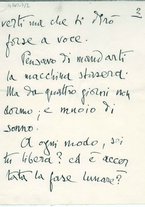 2
verti ma che ti dirò
forse a voce.
Pensavo di mandarti
la macchina stasera.
Ma da quattro giorni non
dormo, e muoio di
sonno.
A ogni modo, sei
tu libera? ed è accer
tata la fase lunare?